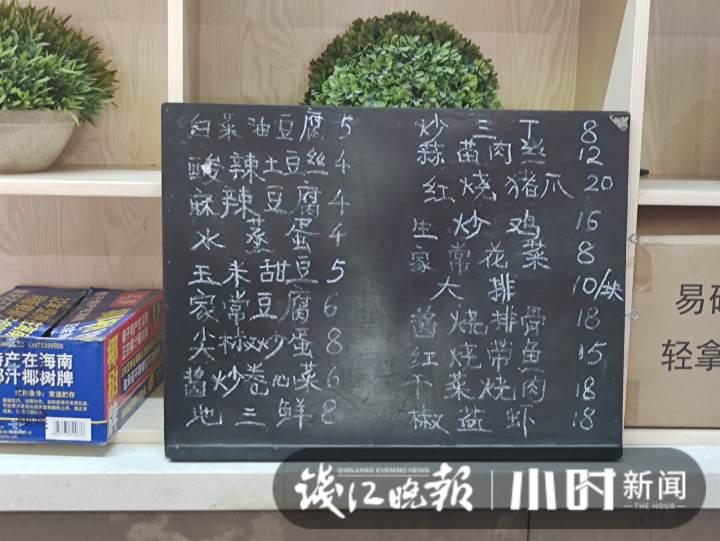 白菜油豆腐 5
酸辣土豆丝 4
麻辣豆腐 4
水蒸蛋 4
玉米甜豆 5
家常豆腐 6
尖椒炒蛋 8
酱炒卷心菜 6
地三鲜 8
炒三丁 8
蒜苗肉丝 12
红烧猪爪 20
生炒鸡 16
家常花菜 8
大排 10/块
酱烧排骨 18
红烧带鱼 15
干菜烧肉 18
椒盐虾 18
特产在海南
椰汁椰树牌
贮存条件:常温贮存
13975399908
易碎
轻拿
QIANJIANG EVENING NEWS
钱江晚报
小时新闻
THE HOUR